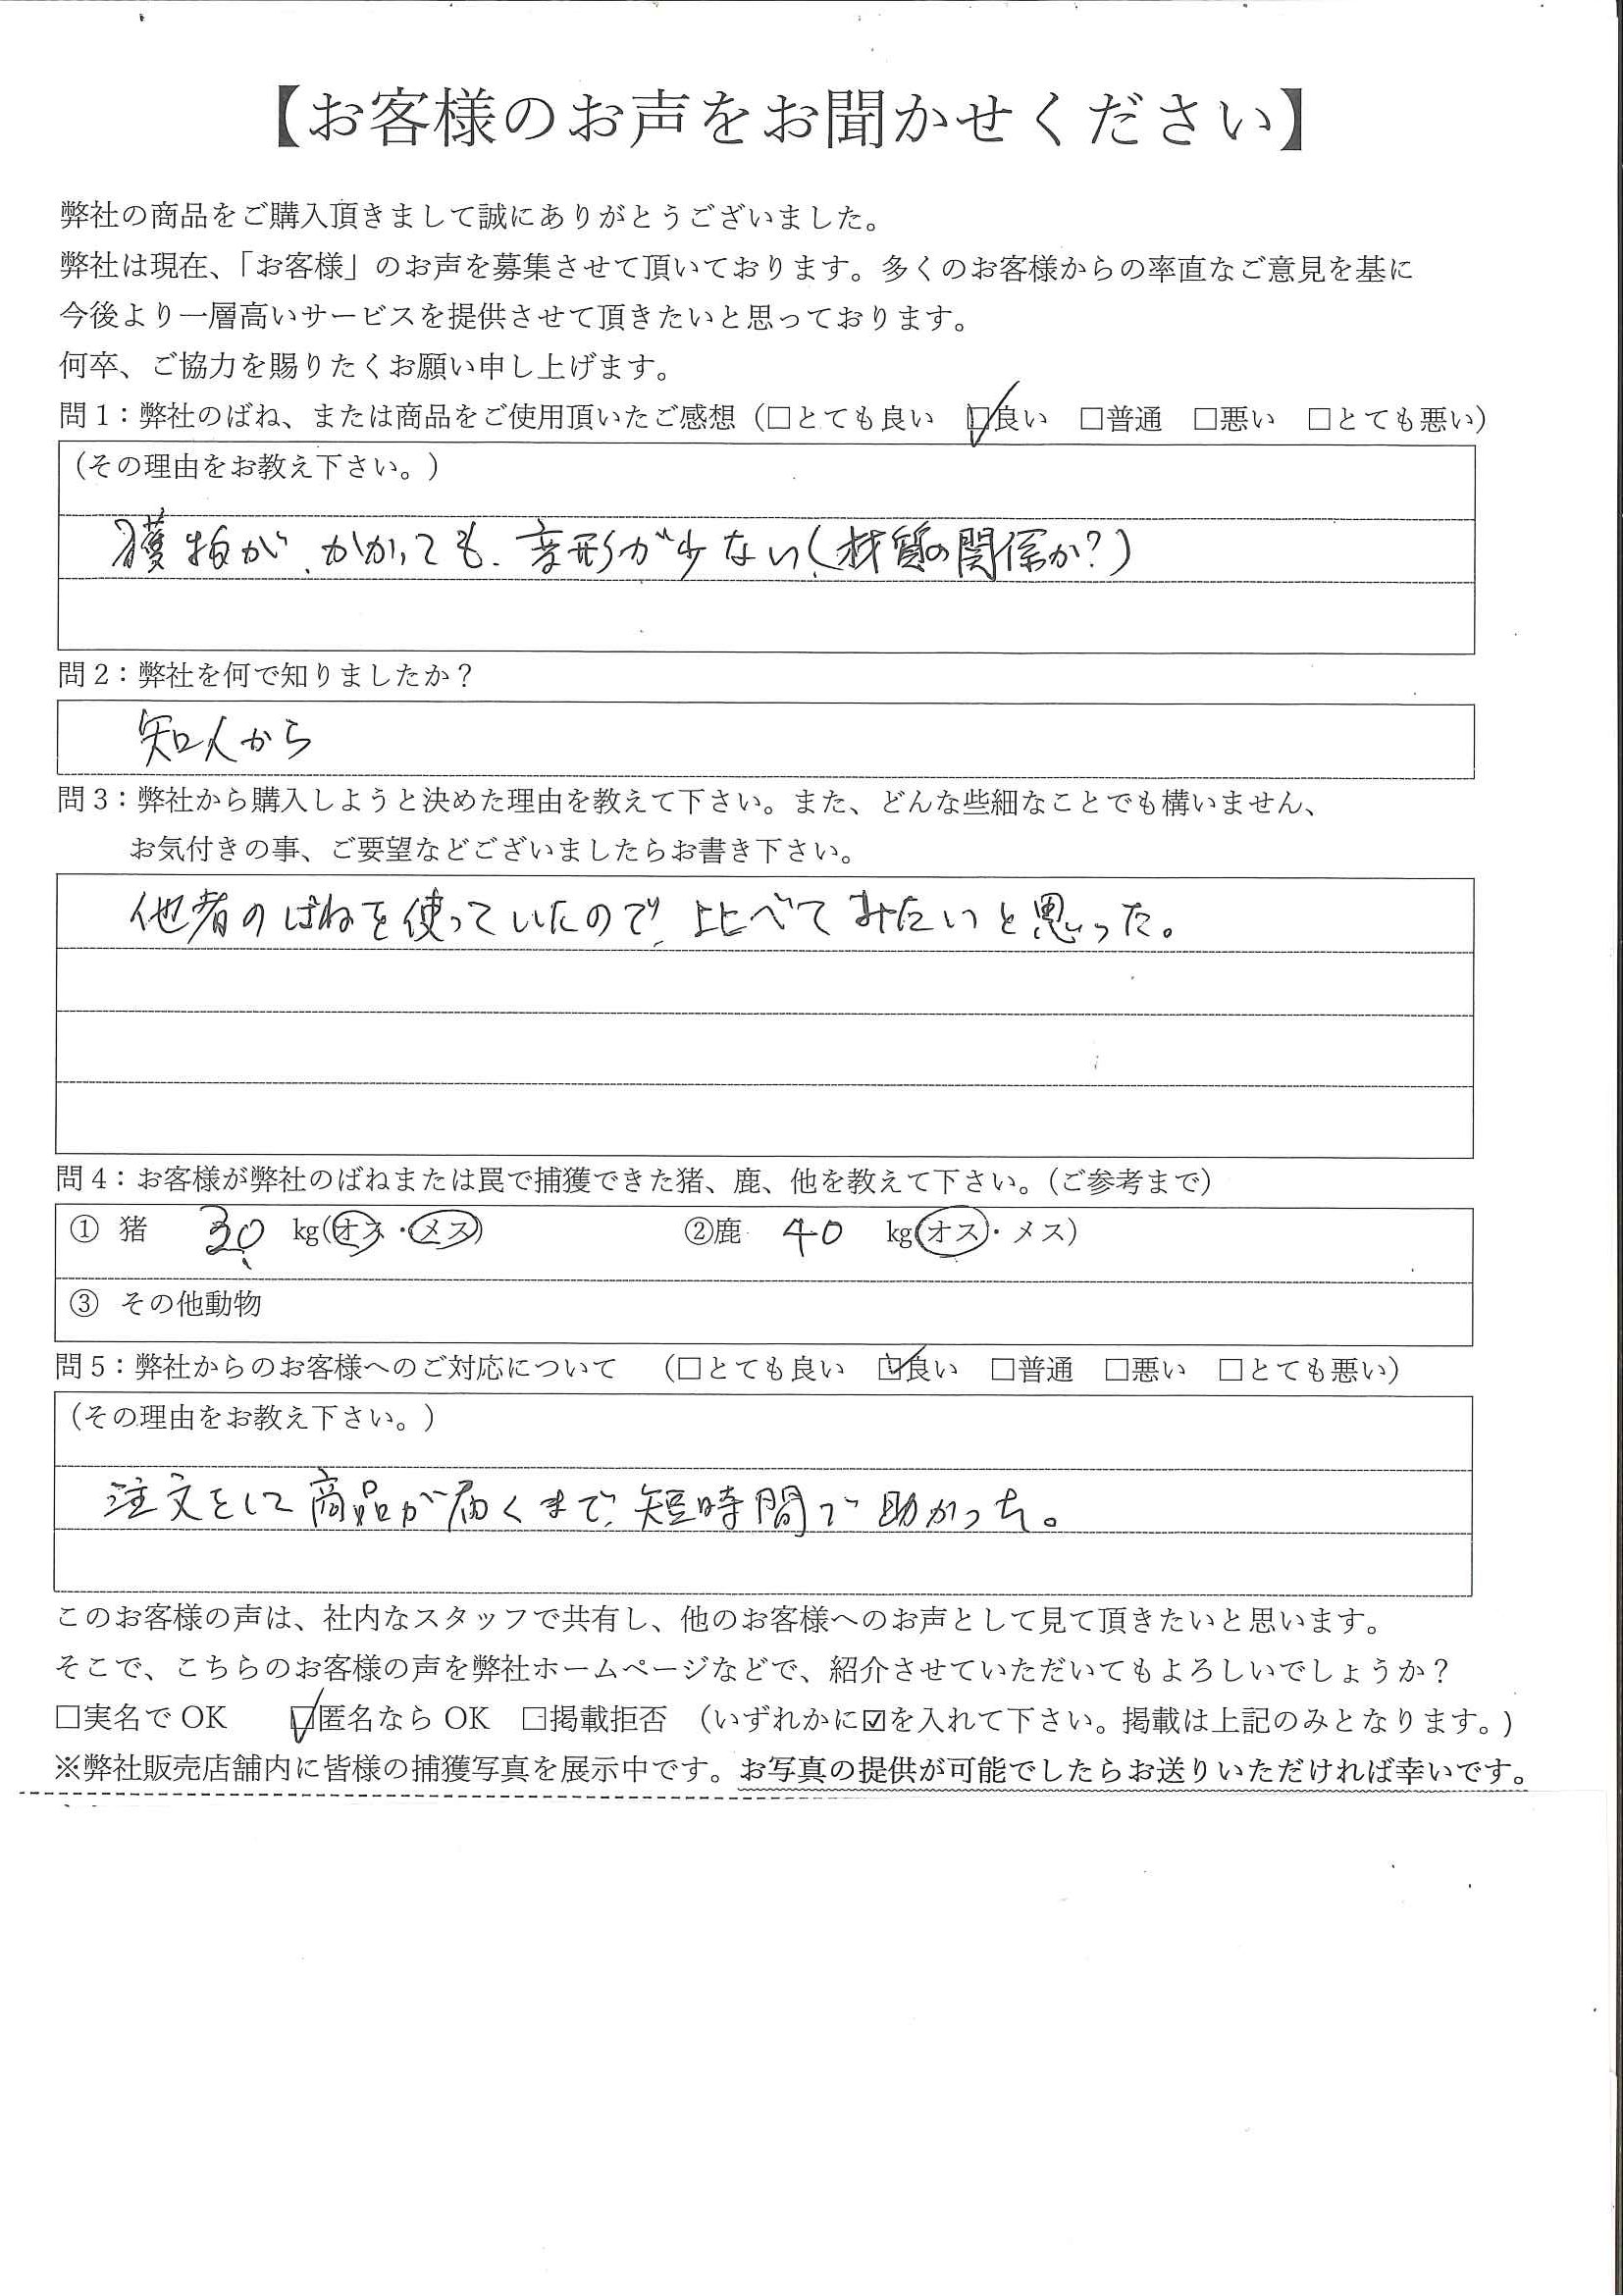 【お客様のお声をお聞かせください】
弊社の商品をご購入頂きまして誠にありがとうございました。
弊社は現在、「お客様」のお声を募集させて頂いております。多くのお客様からの率直なご意見を基に
今後より一層高いサービスを提供させて頂きたいと思っております。
何卒、ご協力を賜りたくお願い申し上げます。
問1：弊社のばね、または商品をご使用頂いたご感想（□とても良い ☑良い □普通 □悪い □とても悪い）
（その理由をお教え下さい。）
獲物が、かかっても、変形が少ない（材質の関係か？）
問2：弊社を何で知りましたか？
知人から
問3：弊社から購入しようと決めた理由を教えて下さい。また、どんな些細なことでも構いません、
お気付きの事、ご要望などございましたらお書き下さい。
他者のばねを使っていたので、比べてみたいと思った。
問4：お客様が弊社のばねまたは罠で捕獲できた猪、鹿、他を教えて下さい。（ご参考まで）
① 猪 30 kg(オス・メス) ②鹿 40 kg(オス・メス)
③ その他動物
問5：弊社からのお客様へのご対応について （□とても良い ☑良い □普通 □悪い □とても悪い）
（その理由をお教え下さい。）
注文をして商品が届くまで、短時間で助かった。
このお客様の声は、社内なスタッフで共有し、他のお客様へのお声として見て頂きたいと思います。
そこで、こちらのお客様の声を弊社ホームページなどで、紹介させていただいてもよろしいでしょうか？
□実名でOK ☑匿名ならOK □掲載拒否 （いずれかに☑を入れて下さい。掲載は上記のみとなります。）
※弊社販売店舗内に皆様の捕獲写真を展示中です。お写真の提供が可能でしたらお送りいただければ幸いです。